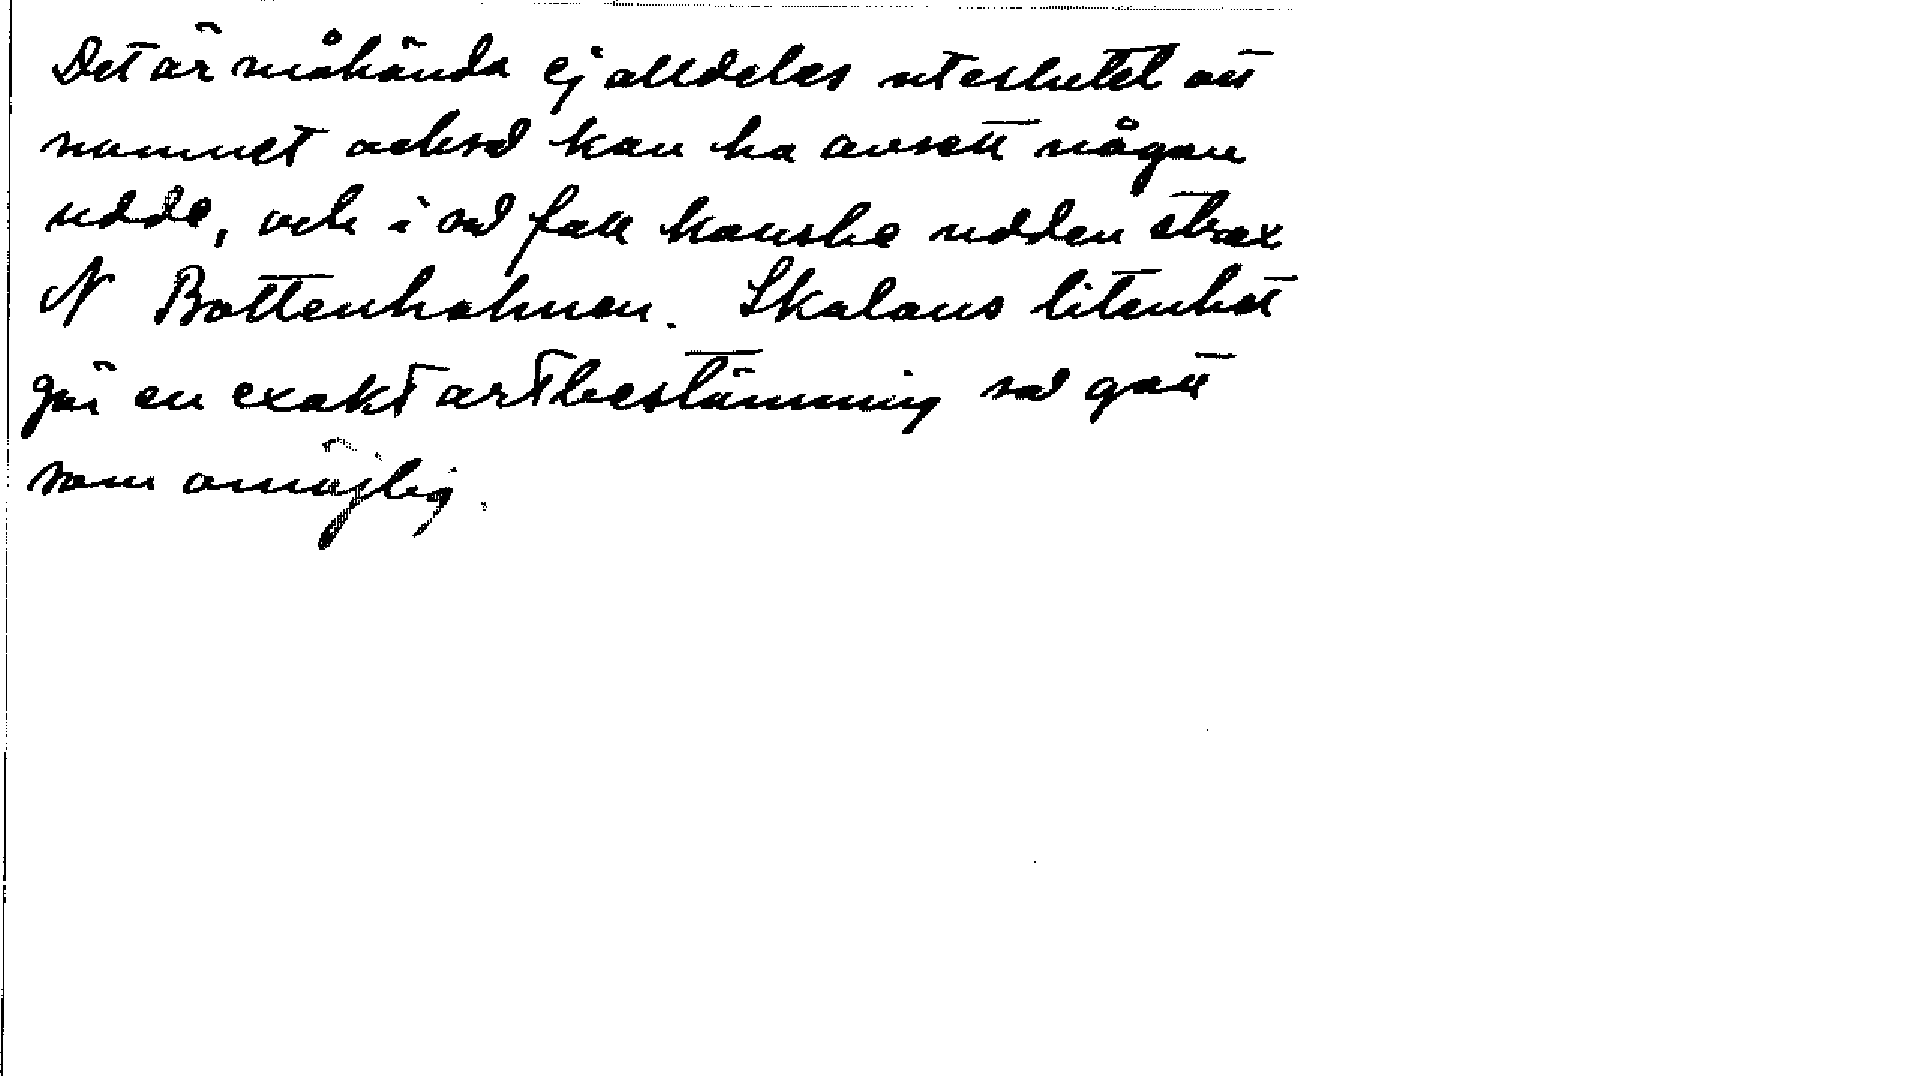 Det är måhända ej alldeles uteslutet att
namnet också kan ha avsett någon
udde, och i så fall kanske udden strax
N Bottenholmen. Skalans litenhet
gör en exakt artbestämning så gott
som omöjlig.